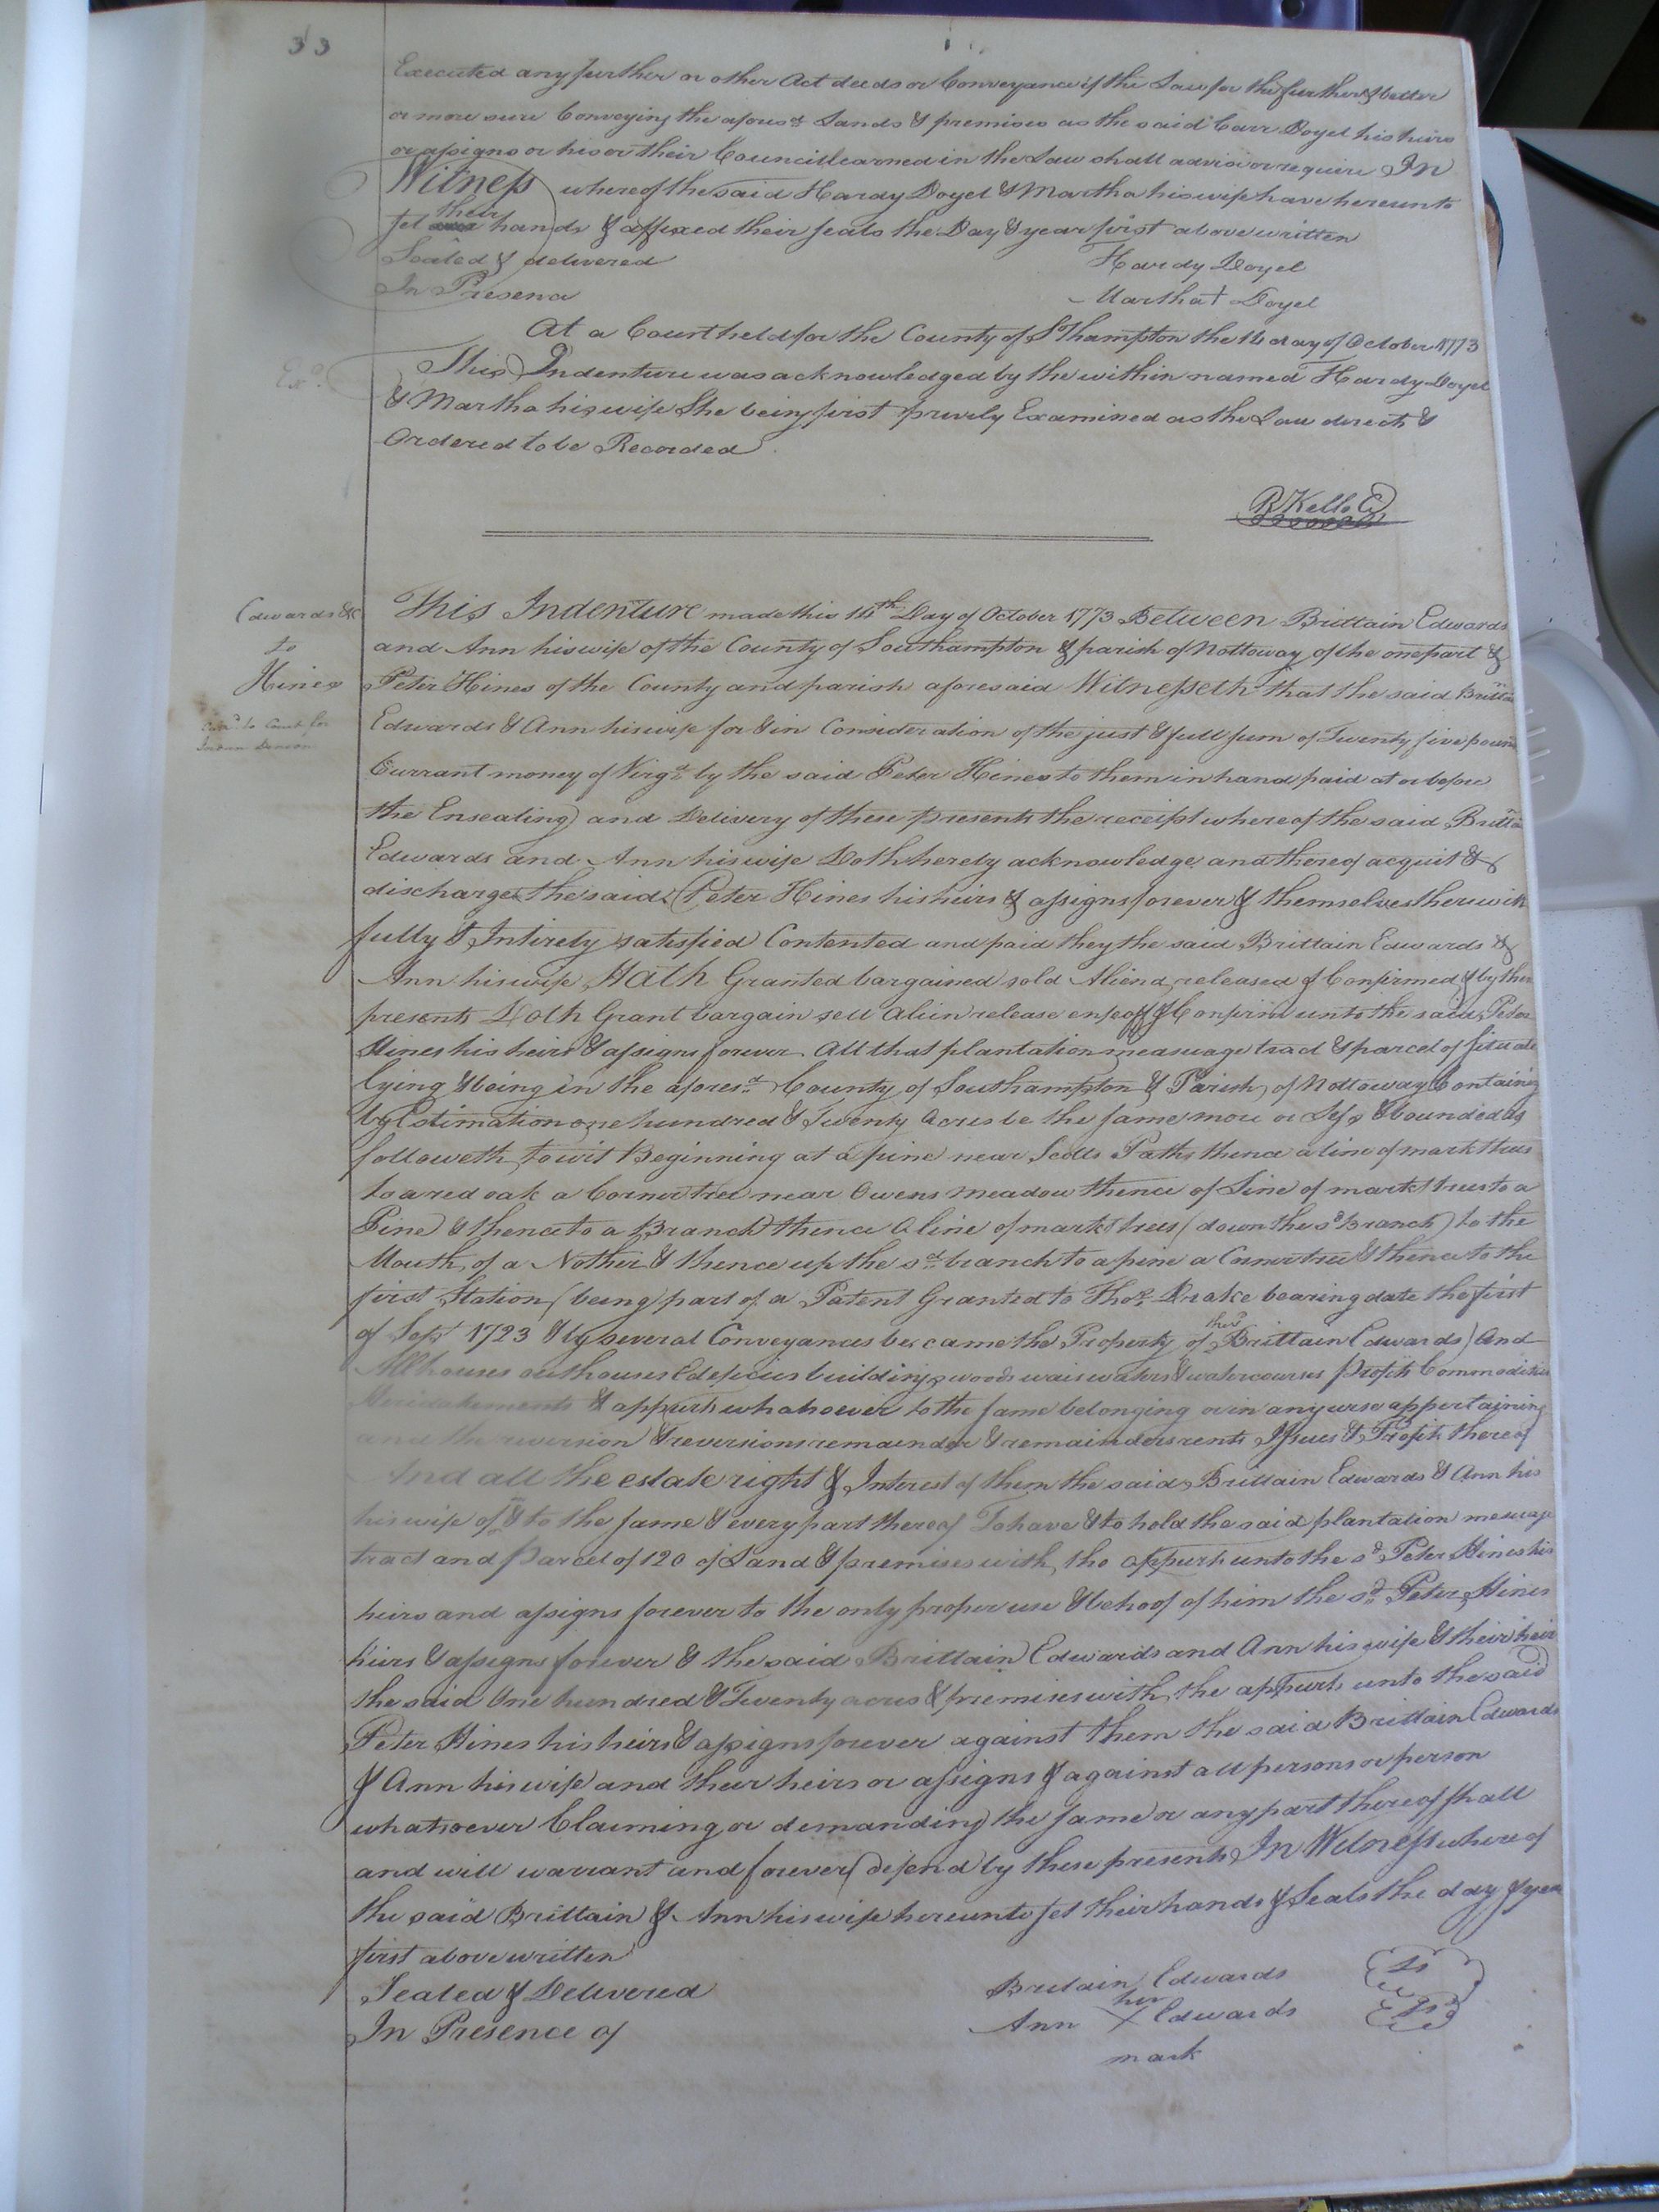 33
Executed any further or other Act deeds or Conveyance if the Law for the further & better
or more sure Conveying the afores.d Lands & premises as the said Carr Doyel his heirs
or assigns or his or their Council learned in the Law shall advise or require In
Witness whereof the said Hardy Doyel & Martha his wife have hereunto
set their hands & affixed their seals the Day & year first above written
Sealed & delivered Hardy Doyel
In Presence Martha + Doyel
At a Court held for the County of S.Thampton the 14 day of October 1773
Ex.d This Indenture was acknowledged by the within named Hardy Doyel
& Martha his wife She being first privily Examined as the Law directs &
Ordered to be Recorded
R Kello C
Edwards &c
to
Hines
This Indenture made this 14th Day of October 1773 Between Brittain Edwards
and Ann his wife of the County of Southampton & parish of Nottoway of the one part &
Peter Hines of the County and parish aforesaid Witnesseth that the said Britta
Edwards & Ann his wife for & in Consideration of the just & full sum of Twenty five pound
Currant money of Virg.a by the said Peter Hines to them in hand paid at or before
the Ensealing and Delivery of these presents the receipt whereof the said Britta
Edwards and Ann his wife Doth hereby acknowledge and thereof acquit &
discharge the said Peter Hines his heirs & assigns forever & themselves therewith
fully & Intirely satisfied Contented and paid they the said Brittain Edwards &
Ann his wife Hath Granted bargained sold Aliend, released & Confirmed & by these
presents Doth Grant bargain sell alien release enfeoff & Confirm unto the said Peter
Hines his heirs & assigns forever. All that plantation measuage tract & parcel of situate
lying & being in the afores.d County of Southampton & Parish of Nottoway Containing
by Estimation one hundred & Twenty Acres be the same more or Less & bounded as
followeth to wit Beginning at a pine near Scotts Path thence a line of markt trees
to a red oak a Corner tree near Owens meadow thence of Line of markt trees to a
Pine & thence to a Branch thence a line of markt trees (down the s.d Branch) to the
Mouth of a Nother & thence up the s.d branch to a pine a Corner tree & thence to the
first Station (being part of a Patent Granted to Tho.s Drake bearing date the first
of Sept 1723 & by several Conveyances became the Property of the s.d Brittain Edwards) And
All houses outhouses Edeficies buildings woods wais waters & watercourses Profits Commodities
& appurts whatsoever to the same belonging or in any wise appertaining
and the reversion & reversions remainder & remainders rents Issues & Profits thereof
And all the estate right & Interest of them the said Brittain Edwards & Ann his
his wife of in & to the same & every part thereof To have & to hold the said plantation mesuage
tract and parcel of 120 of Land & premises with the appurts unto the s.d Peter Hines his
heirs and assigns forever to the only proper use & behoof of him the s.d Peter Hines
heirs & assigns forever & the said Brittain Edwards and Ann his wife & their heirs
the said One hundred & Twenty acres & premises with the appurts unto the said
Peter Hines his heirs & assigns forever against them the said Brittain Edwards
& Ann his wife and their heirs or assigns & against all persons or person
whatsoever Claiming or demanding the same or any part thereof shall
and will warrant and forever defend by these presents In Witness whereof
the said Brittain & Ann his wife hereunto set their hands & Seals the day & year
first above written
Sealed & Delivered Britain Edwards Ls
In Presence of Ann her X Edwards Ls
mark